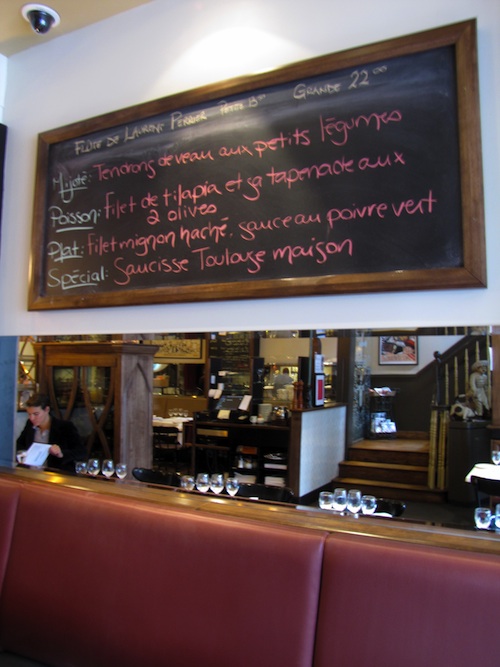 FLÛTE DE LAURENT PERRIER PETITE 13⁰⁰ GRANDE 22⁰⁰
Mijoté: Tendrons de veau aux petits légumes
Poisson: Filet de tilapia et sa tapenade aux
2 olives
Plat: Filet mignon haché, sauce au poivre vert
Spécial: Saucisse Toulouse maison